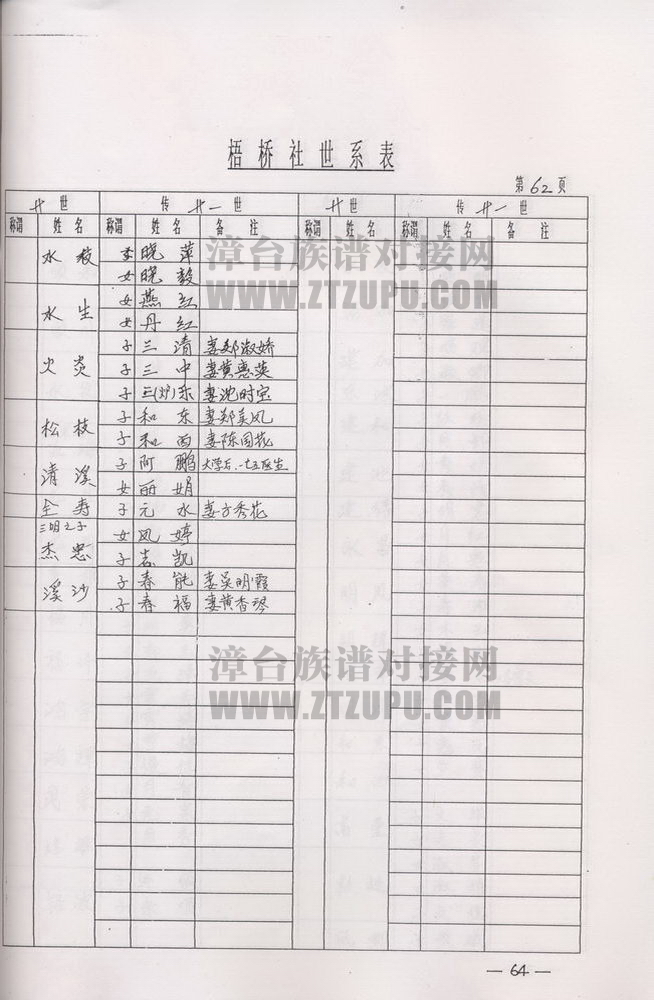 梧桥社世系表
第62页
廿世 传廿一世 廿世 传廿一世
称谓 姓名 称谓 姓名 备注 称谓 姓名 称谓 姓名 备注
漳台族谱对接网
WWW.ZTZUPU.COM
水枝 女 晓萍
女 晓毅
水生 女 燕红
女 丹红
火炎 子 三清 妻郑淑娇
子 三中 妻黄惠英
子 三(炉)乐 妻沈时宝
松枝 子 和东 妻郑美凤
子 和西 妻陈国花
清溪 子 阿鹏 大学后,一七五医生
女 丽娟
全寿 子 元水 妻方秀花
三明之子
杰忠 女 凤婷
子 志凯
溪沙 子 春能 妻吴明霞
子 春福 妻黄香琴
漳台族谱对接网
WWW.ZTZUPU.COM
— 64 —